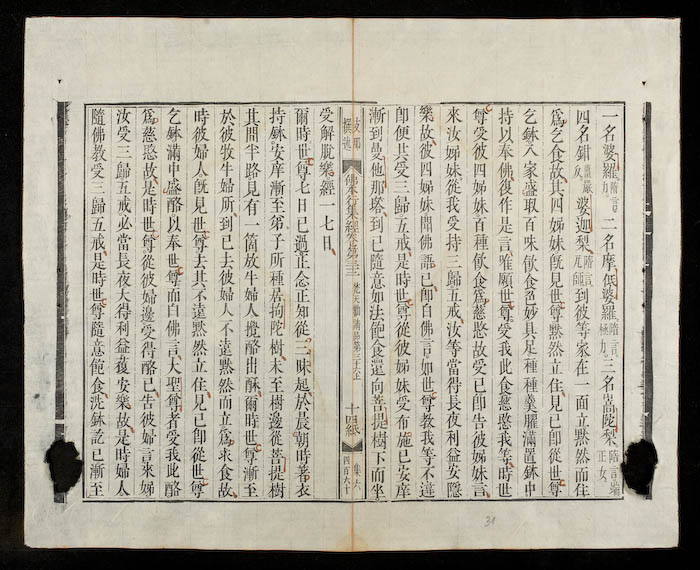 一名婆羅隋言力二名摩低婆羅隋言極力三名嵩陀梨隋言端正女
四名鉗嚴反婆迦梨隋言瓦師到彼等家在一面立黙然而住
爲乞食故其四姊妹旣見世尊黙然立住見已即從世尊
乞鉢入家盛取百味飮食色妙具足種種羹臛滿置鉢中
持以奉佛復作是言唯願世尊受我此食慈愍我等時世
尊受彼四姊妹百種飮食爲慈愍故受已即告彼姊妹言
來汝姊妹從我受持三歸五戒汝等當得長夜利益安隱
樂故彼四姊妹聞佛語已即白佛言如世尊敎我等不違
即便共受三歸五戒是時世尊從彼姊妹受布施已安庠
漸到曼他那塔到已隨意如法飽食還向菩提樹下而坐
支那撰述 佛本行集經卷第三十三 梵天勸請品第三十六上 十四紙 集六
受解脫樂經一七日
爾時世尊七日已過正念正知從三昧起於晨朝時著衣
持鉢安庠漸至弟子所種居拘陀樹未至樹邊從菩提樹
其間半路見有一箇放牛婦人攪酪出酥爾時世尊漸至
於彼牧牛婦所到已去彼婦人不遠黙然而立爲求食故
時彼婦人旣見世尊去其不遠黙然立住見已即從世尊
乞鉢滿中盛酪以奉世尊而白佛言大聖尊者受我此酪
爲慈愍故是時世尊從彼婦邊受得酪已告彼婦言來姊
汝受三歸五戒必當長夜大得利益獲安樂故是時婦人
隨佛敎受三歸五戒是時世尊隨意飽食洗鉢訖已漸至
31